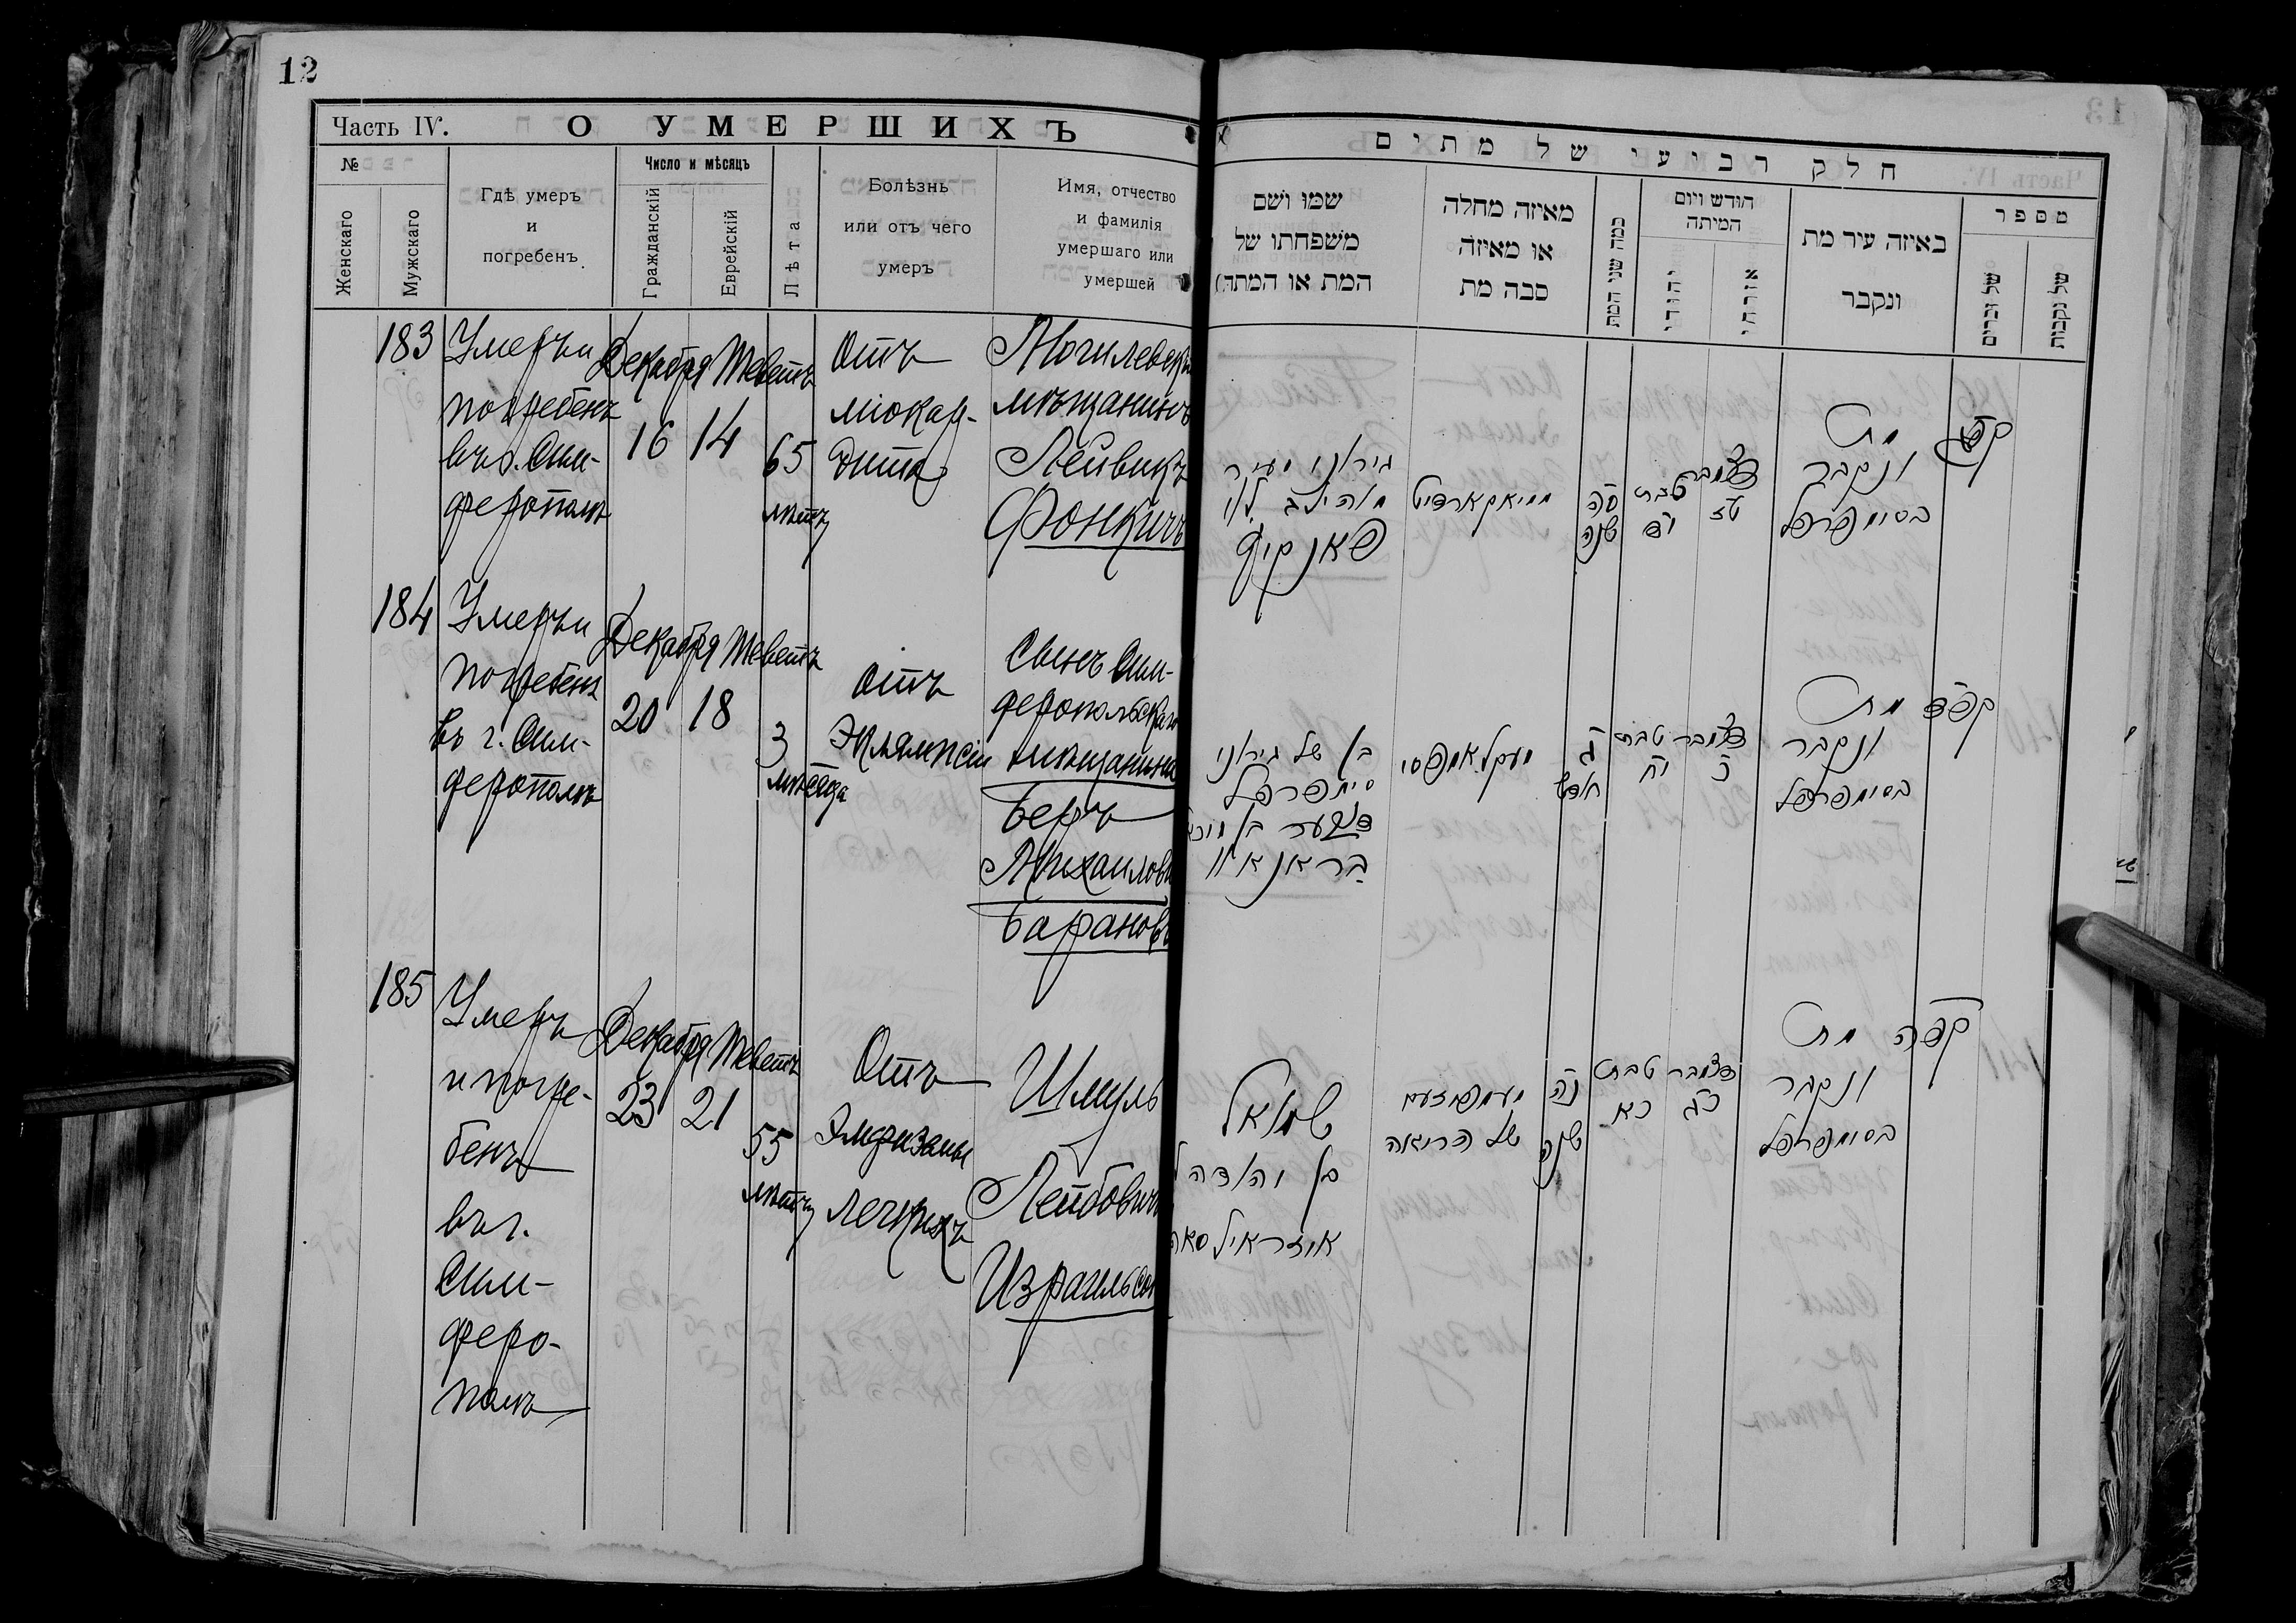 12
Часть IV. О УМЕРШИХЪ
№
Женскаго
Мужскаго
Гдѣ умеръ
и
погребенъ
Число и мѣсяцъ
Гражданскій
Еврейскій
Лѣта
Болѣзнь
или отъ чего
умеръ
Имя, отчество
и фамилія
умершаго или
умершей
183
Умеръ и
погребенъ
въ г. Сим-
ферополѣ
Декабря
16
Теветъ
14
65
лѣтъ
Отъ
міокар-
дита
Могилевскі
мѣщанинъ
Лейвикъ
Фонкичъ
184
Умеръ и
погребенъ
въ г. Сим-
ферополѣ
Декабря
20
Теветъ
18
3
мѣсяца
Отъ
Эклямпсіи
Сынъ Сим-
феропольскаго
мѣщанина
Беръ
Михаилови
Барановъ
185
Умеръ
и погре-
бенъ
въ г.
Сим-
феро-
полѣ
Декабря
23
Теветъ
21
55
лѣтъ
Отъ
Эмфиземы
легкихъ
Шмуль
Лейбовичъ
Израильсон
חלק רבועי של מתים
מספר
של נקבות
של זכרים
באיזה עיר מת
ונקבר
חודש ויום
המיתה
אזרחי
יהודי
כמה שני המת
מאיזה מחלה
או מאיזה
סבה מת
שמו ושם
משפחתו של
המת או המתה)
קפג
מת
ונקבר
בסימפרפל
דצמבר
טז
טבת
יד
סה
שנה
מיאקארדיט
לוי
פאנקיץ
קפד
מת
ונקבר
בסימפרפל
דצמבר
כ
טבת
יח
ג
חודש
בן של
סימפרפל
בראנאוו
קפה
מת
ונקבר
בסימפרפל
דצמבר
כג
טבת
כא
נה
שנה
עמפיזעם
של הריאה
שמואל
בן
איזראילסאה